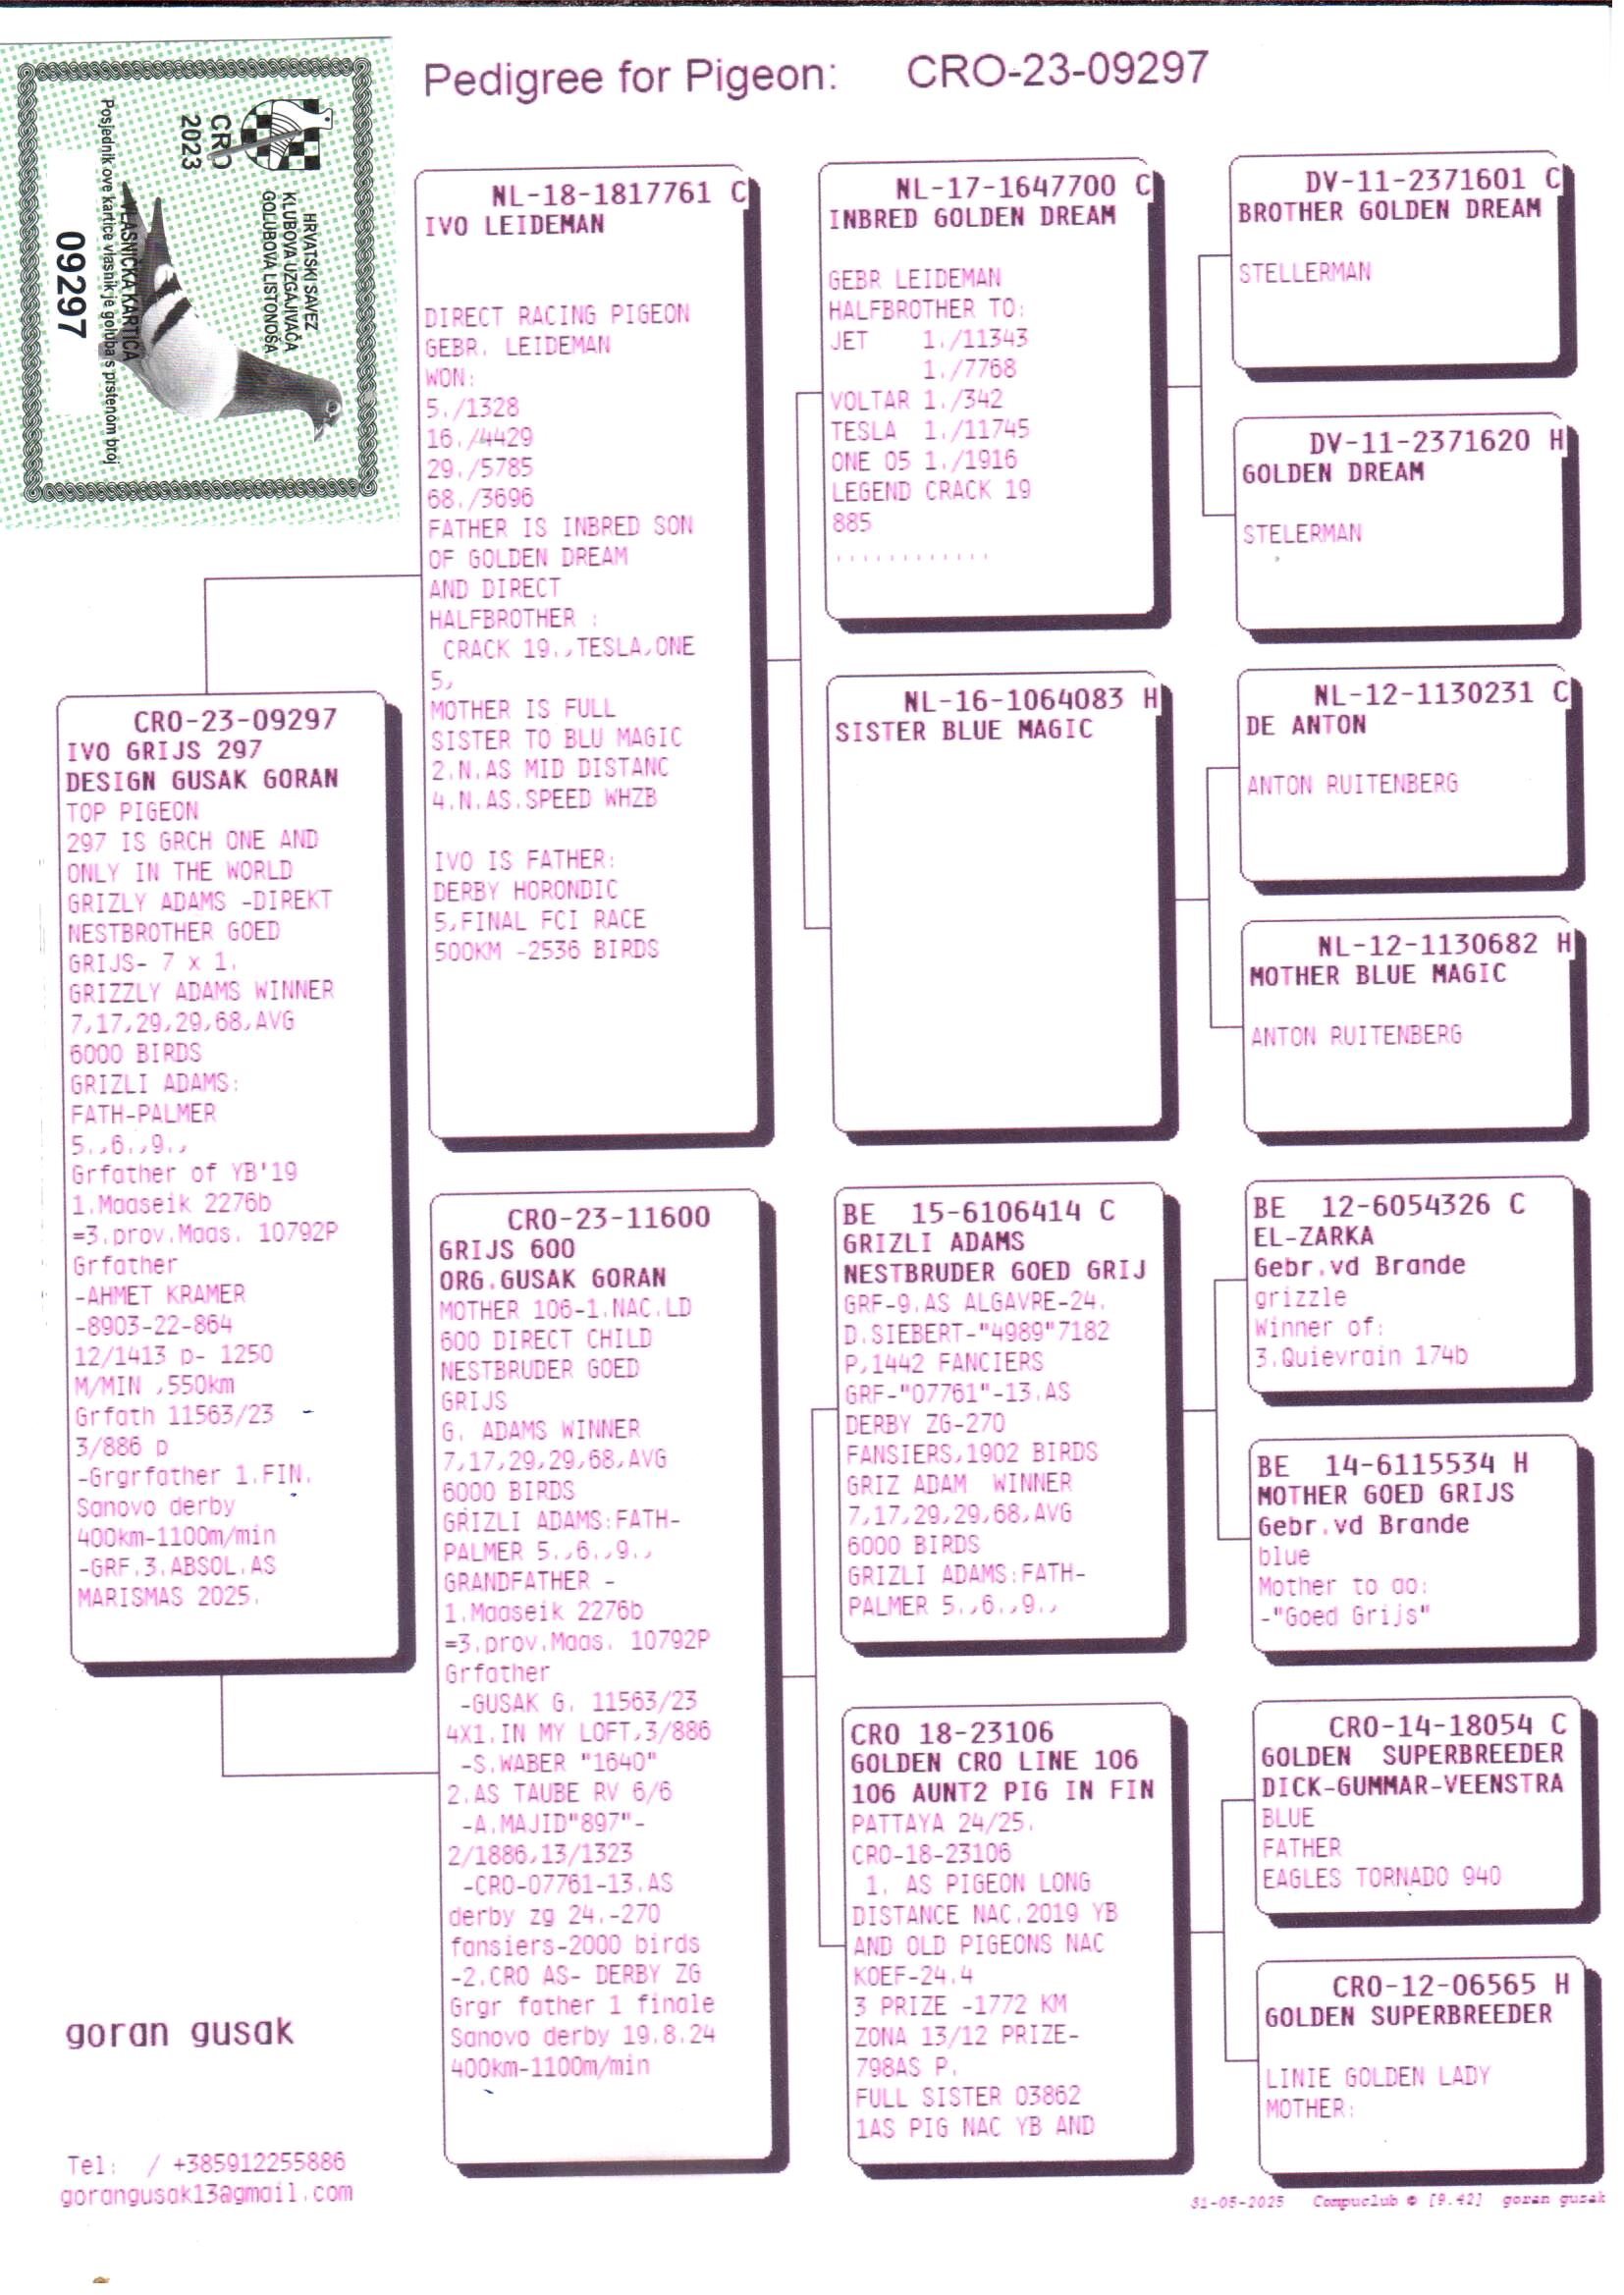 Pedigree for Pigeon: CRO-23-09297
HRVATSKI SAVEZ
KLUBOVA UZGAJIVAČA
GOLUBOVA LISTONOŠA
CRO
2023
VLASNIČKA KARTICA
Posjednik ove kartice vlasnik je goluba s prstenom broj
09297
CRO-23-09297
IVO GRIJS 297
DESIGN GUSAK GORAN
TOP PIGEON
297 IS GRCH ONE AND
ONLY IN THE WORLD
GRIZLY ADAMS -DIREKT
NESTBROTHER GOED
GRIJS- 7 x 1.
GRIZZLY ADAMS WINNER
7,17,29,29,68,AVG
6000 BIRDS
GRIZLI ADAMS:
FATH-PALMER
5.,6.,9.,
Grfather of YB'19
1.Maaseik 2276b
=3.prov.Maas. 10792P
Grfather
-AHMET KRAMER
-8903-22-864
12/1413 p- 1250
M/MIN ,550km
Grfath 11563/23
3/886 p
-Grgrfather 1.FIN.
Sanovo derby
400km-1100m/min
-GRF.3.ABSOL.AS
MARISMAS 2025.
NL-18-1817761 C
IVO LEIDEMAN
DIRECT RACING PIGEON
GEBR. LEIDEMAN
WON:
5./1328
16./4429
29./5785
68./3696
FATHER IS INBRED SON
OF GOLDEN DREAM
AND DIRECT
HALFBROTHER :
CRACK 19.,TESLA,ONE
5,
MOTHER IS FULL
SISTER TO BLU MAGIC
2.N.AS MID DISTANC
4.N.AS.SPEED WHZB
IVO IS FATHER:
DERBY HORONDIC
5,FINAL FCI RACE
500KM -2536 BIRDS
CRO-23-11600
GRIJS 600
ORG.GUSAK GORAN
MOTHER 106-1.NAC.LD
600 DIRECT CHILD
NESTBRUDER GOED
GRIJS
G. ADAMS WINNER
7,17,29,29,68,AVG
6000 BIRDS
GRIZLI ADAMS:FATH-
PALMER 5.,6.,9.,
GRANDFATHER -
1.Maaseik 2276b
=3.prov.Maas. 10792P
Grfather
-GUSAK G. 11563/23
4X1.IN MY LOFT,3/886
-S.WABER "1640"
2.AS TAUBE RV 6/6
-A.MAJID"897"-
2/1886,13/1323
-CRO-07761-13.AS
derby zg 24.-270
fansiers-2000 birds
-2.CRO AS- DERBY ZG
Grgr father 1 finale
Sanovo derby 19.8.24
400km-1100m/min
NL-17-1647700 C
INBRED GOLDEN DREAM
GEBR LEIDEMAN
HALFBROTHER TO:
JET 1./11343
1./7768
VOLTAR 1./342
TESLA 1./11745
ONE 05 1./1916
LEGEND CRACK 19
885
............
NL-16-1064083 H
SISTER BLUE MAGIC
BE 15-6106414 C
GRIZLI ADAMS
NESTBRUDER GOED GRIJ
GRF-9.AS ALGAVRE-24.
D.SIEBERT-"4989"7182
P,1442 FANCIERS
GRF-"07761"-13.AS
DERBY ZG-270
FANSIERS,1902 BIRDS
GRIZ ADAM WINNER
7,17,29,29,68,AVG
6000 BIRDS
GRIZLI ADAMS:FATH-
PALMER 5.,6.,9.,
CRO 18-23106
GOLDEN CRO LINE 106
106 AUNT2 PIG IN FIN
PATTAYA 24/25.
CRO-18-23106
1. AS PIGEON LONG
DISTANCE NAC.2019 YB
AND OLD PIGEONS NAC
KOEF-24.4
3 PRIZE -1772 KM
ZONA 13/12 PRIZE-
798AS P.
FULL SISTER 03862
1AS PIG NAC YB AND
DV-11-2371601 C
BROTHER GOLDEN DREAM
STELLERMAN
DV-11-2371620 H
GOLDEN DREAM
STELERMAN
NL-12-1130231 C
DE ANTON
ANTON RUITENBERG
NL-12-1130682 H
MOTHER BLUE MAGIC
ANTON RUITENBERG
BE 12-6054326 C
EL-ZARKA
Gebr.vd Brande
grizzle
Winner of:
3.Quievrain 174b
BE 14-6115534 H
MOTHER GOED GRIJS
Gebr.vd Brande
blue
Mother to ao:
-"Goed Grijs"
CRO-14-18054 C
GOLDEN SUPERBREEDER
DICK-GUMMAR-VEENSTRA
BLUE
FATHER
EAGLES TORNADO 940
CRO-12-06565 H
GOLDEN SUPERBREEDER
LINIE GOLDEN LADY
MOTHER:
goran gusak
Tel: / +385912255886
gorangusak13@gmail.com
31-05-2025 Compuclub © [9.42] goran gusak